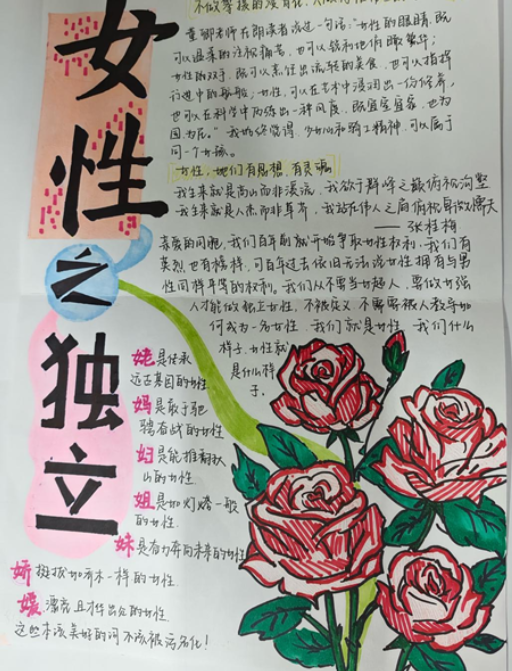 女性之独立
董卿老师在朗读者说过一句话："女性的眼睛，既
可以温柔的注视痛苦，也可以锐利地俯瞰繁华；
女性的双手，既可以烹饪出流转的美食，也可以指挥
行进中的船舷；女性，可以在艺术中浸润出一份修养，
也可以在科学中历练出一种风度，既宜室宜家，也为
国为民。"我始终觉得，少女心和骑士精神，可以属于
同一个女孩。
女性，她们有思想，有灵魂
我生来就是高山而非溪流，我欲于群峰之巅俯视沟壑
我生来就是人杰而非草芥，我站在伟人之肩俯视卑微懦夫
——张桂梅
亲爱的同胞，我们百年前就开始争取女性权利，我们有
英烈也有榜样，可百年过去依旧无法说女性拥有与男
性同样平等的权利。我们从不要当超人，要做女强
人才能做独立女性，不被定义，不需要被人教导如
何成为一名女性，我们就是女性，我们什么
样子，女性就
是什么样
子。
姥是传承
远古基因的女性
妈是敢于驰
骋奋战的女性
妇是能推翻
山的女性
姐是如灯塔一般
的女性
妹是有力奔向未来的女性
娇挺拔如乔木一样的女性
媛漂亮且才华出众的女性
这些本该美好的词不该被污名化！